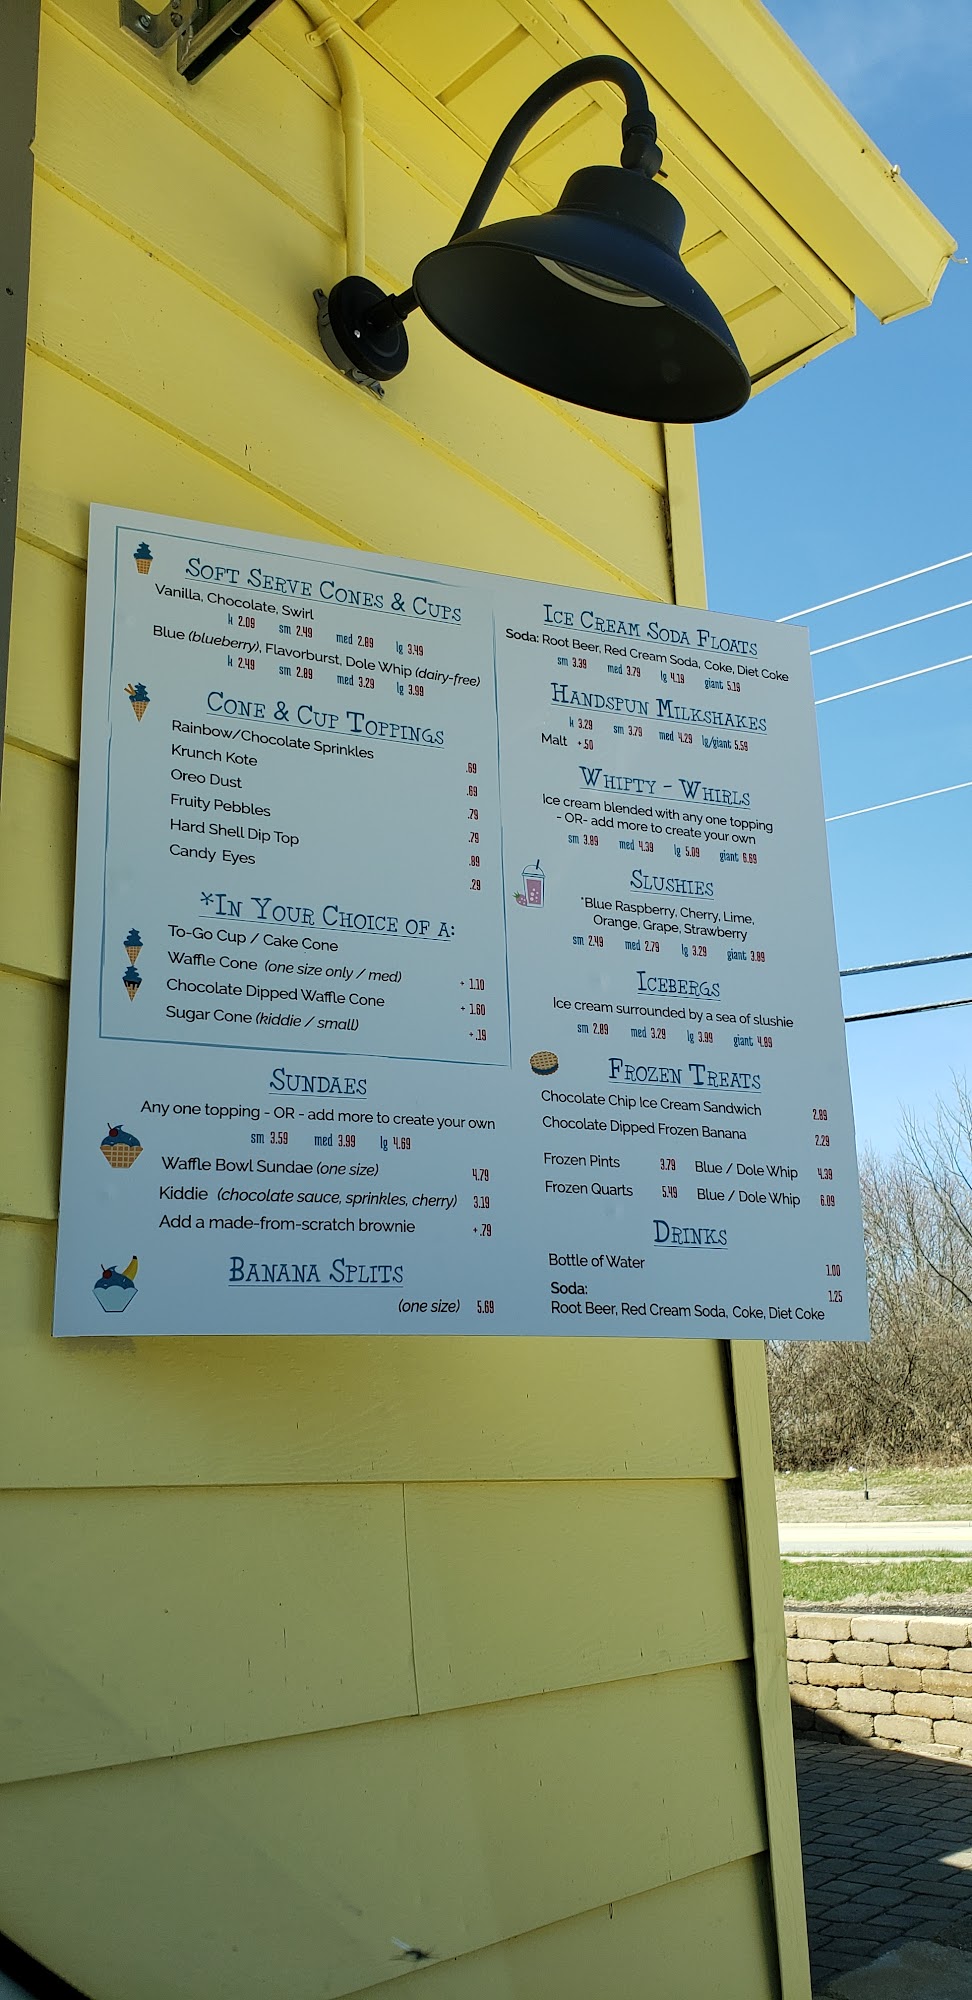 Soft Serve Cones & Cups
Vanilla, Chocolate, Swirl
k 2.09 sm 2.49 med 2.89 lg 3.49
Blue (blueberry), Flavorburst, Dole Whip (dairy-free)
k 2.49 sm 2.89 med 3.29 lg 3.99
Cone & Cup Toppings
Rainbow/Chocolate Sprinkles .69
Krunch Kote .69
Oreo Dust .79
Fruity Pebbles .79
Hard Shell Dip Top .89
Candy Eyes .29
*In Your Choice of a:
To-Go Cup / Cake Cone
Waffle Cone (one size only / med) + 1.10
Chocolate Dipped Waffle Cone + 1.60
Sugar Cone (kiddie / small) + .19
Sundaes
Any one topping - OR - add more to create your own
sm 3.59 med 3.99 lg 4.69
Waffle Bowl Sundae (one size) 4.79
Kiddie (chocolate sauce, sprinkles, cherry) 3.19
Add a made-from-scratch brownie + .79
Banana Splits
(one size) 5.69
Ice Cream Soda Floats
Soda: Root Beer, Red Cream Soda, Coke, Diet Coke
sm 3.39 med 3.79 lg 4.19 giant 5.19
Handspun Milkshakes
k 3.29 sm 3.79 med 4.29 lg/giant 5.59
Malt + .50
Whipty - Whirls
Ice cream blended with any one topping
- OR- add more to create your own
sm 3.89 med 4.39 lg 5.09 giant 6.69
Slushies
*Blue Raspberry, Cherry, Lime,
Orange, Grape, Strawberry
sm 2.49 med 2.79 lg 3.29 giant 3.89
Icebergs
Ice cream surrounded by a sea of slushie
sm 2.89 med 3.29 lg 3.99 giant 4.89
Frozen Treats
Chocolate Chip Ice Cream Sandwich 2.89
Chocolate Dipped Frozen Banana 2.29
Frozen Pints 3.79 Blue / Dole Whip 4.39
Frozen Quarts 5.49 Blue / Dole Whip 6.09
Drinks
Bottle of Water 1.00
Soda: 1.25
Root Beer, Red Cream Soda, Coke, Diet Coke